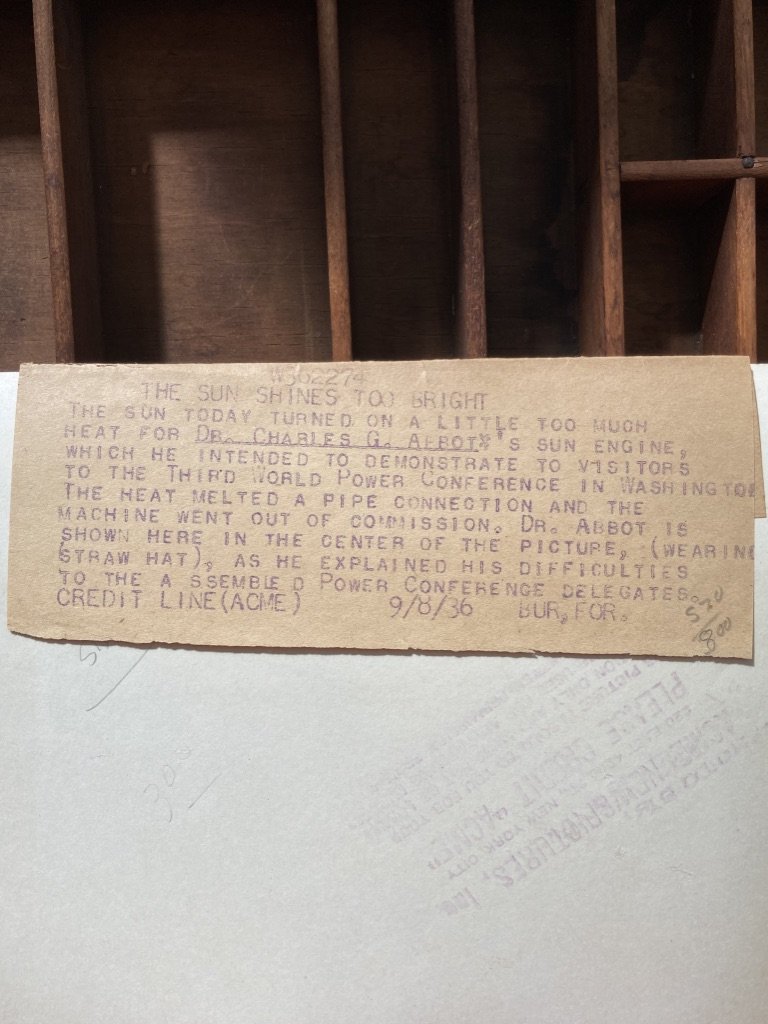 W362274
THE SUN SHINES TOO BRIGHT
THE SUN TODAY TURNED ON A LITTLE TOO MUCH
HEAT FOR DR. CHARLES G. ABBOT'S SUN ENGINE,
WHICH HE INTENDED TO DEMONSTRATE TO VISITORS
TO THE THIRD WORLD POWER CONFERENCE IN WASHINGTON
THE HEAT MELTED A PIPE CONNECTION AND THE
MACHINE WENT OUT OF COMMISSION. DR. ABBOT IS
SHOWN HERE IN THE CENTER OF THE PICTURE, (WEARING
STRAW HAT), AS HE EXPLAINED HIS DIFFICULTIES
TO THE A SSEMBLE D POWER CONFERENCE DELEGATES.
CREDIT LINE(ACME) 9/8/36 BUR, FOR.
PLEASE CREDIT "ACME"
NEW YORK CITY
ACME NEWSPICTURES, Inc